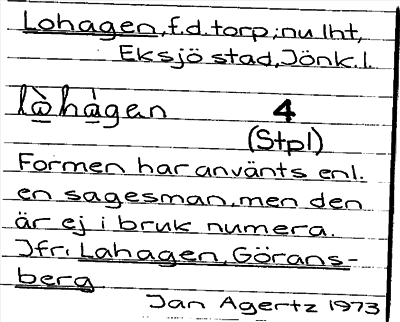 Lohagen, f.d. torp; nu lht,
Eksjö stad, Jönk. l.
lòhàgen 4
(Stpl)
Formen har använts enl.
en sagesman, men den
är ej i bruk numera.
Jfr: Lahagen, Görans-
berg
Jan Agertz 1973